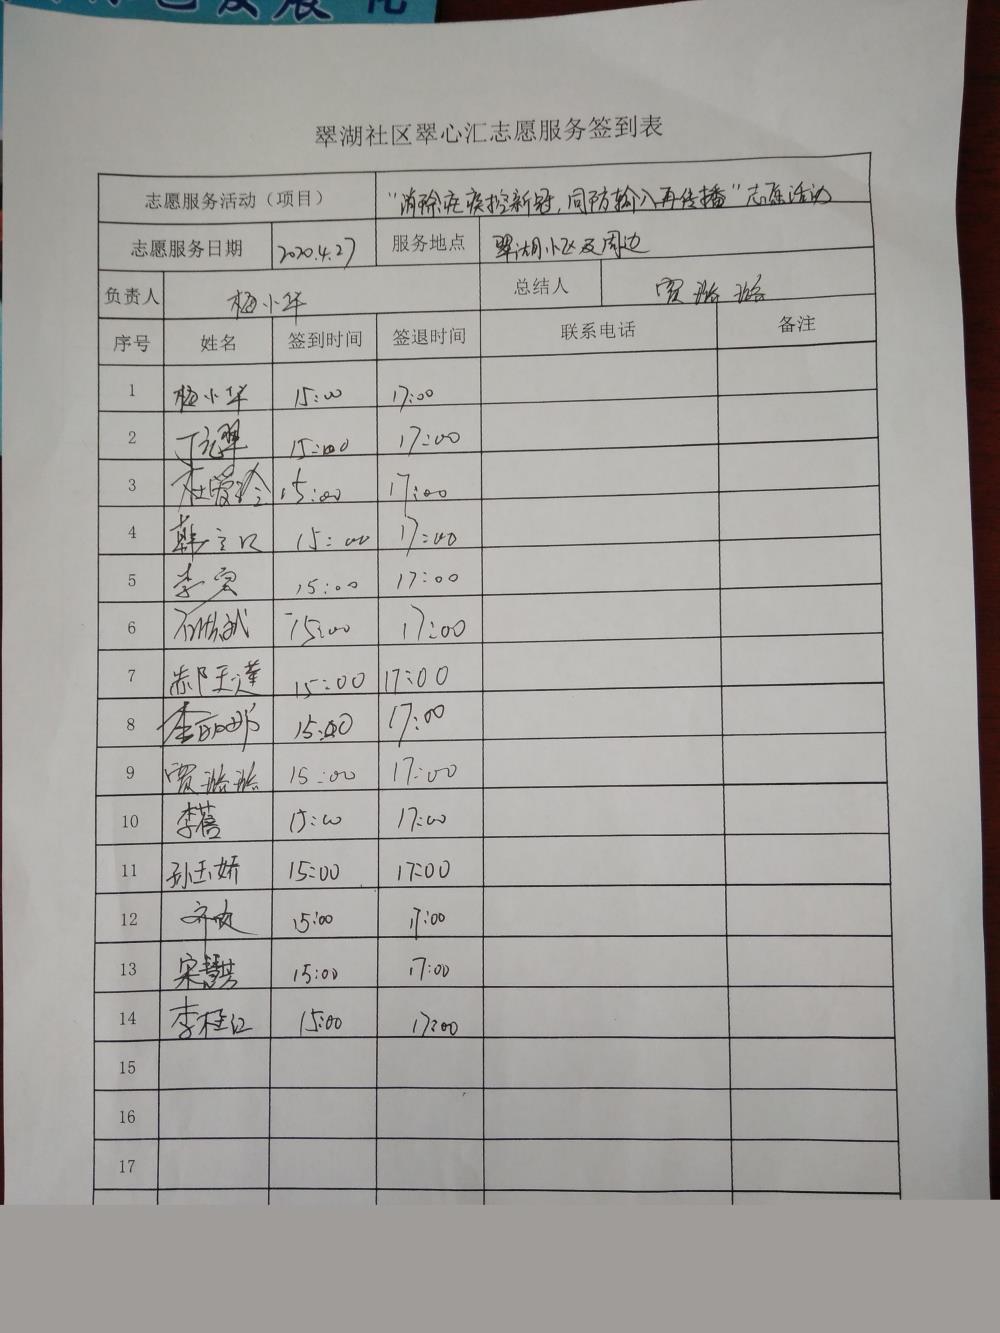 发展
翠湖社区翠心汇志愿服务签到表
志愿服务活动（项目） “消除疟疾控新冠，同防输入再传播”志愿活动
志愿服务日期 2020.4.27 服务地点 翠湖小区及周边
负责人 梅小华 总结人 贾璐璐
序号 姓名 签到时间 签退时间 联系电话 备注
1 梅小华 15:00 17:00
2 15:00 17:00
3 杜爱玲 15:00 17:00
4 15:00 17:00
5 李寅 15:00 17:00
6 15:00 17:00
7 郝玉莲 15:00 17:00
8 李丽娜 15:00 17:00
9 贾璐璐 15:00 17:00
10 李蓓 15:00 17:00
11 孙玉娇 15:00 17:00
12 15:00 17:00
13 宋慧芳 15:00 17:00
14 李桂红 15:00 17:00
15
16
17